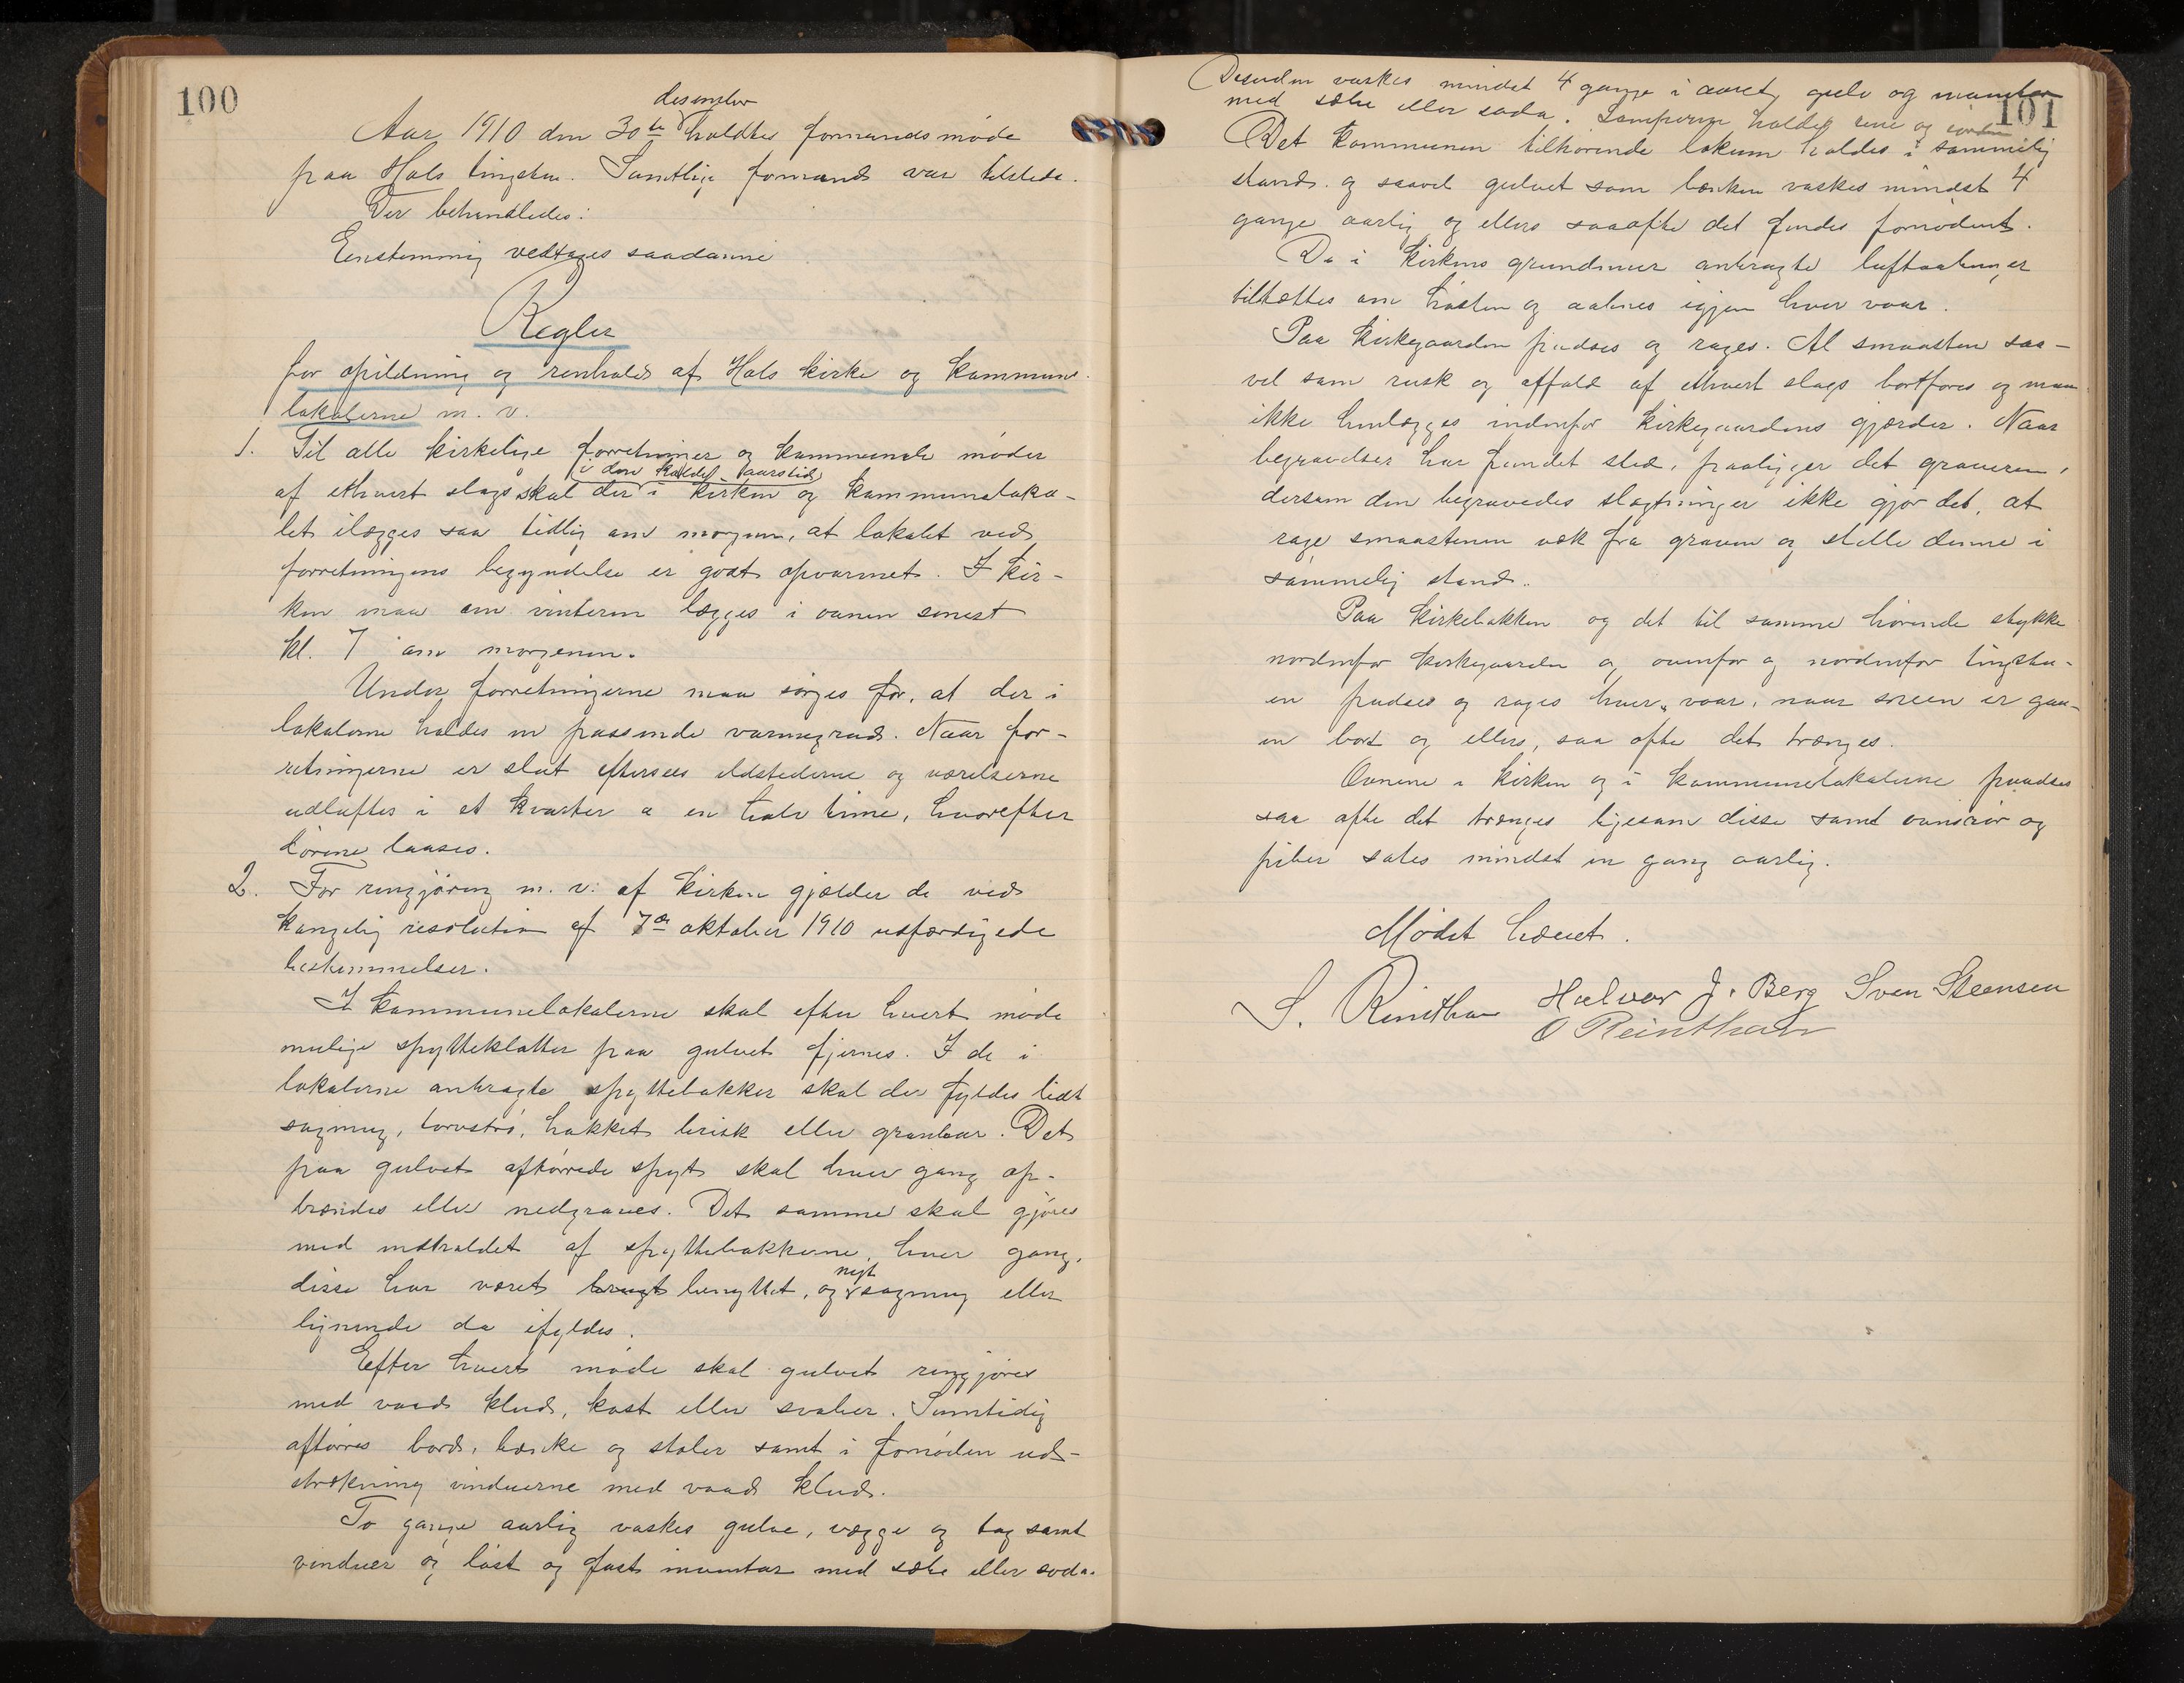 100
desember
Aar 1910 den 30te holdtes formandsmøde
paa Hals tingstue. Samtlige formænd var tilstede.
Der behandledes:
Enstemmig vedtages saadanne
Regler
for opildning og renhold af Hals kirke og kommune-
lokalerne m. v.
1. Til alle kirkelige forretninger og kommunale møder
i den kolde aarstid
af ethvert slags skal der i kirken og kommuneloka-
let ilægges saa tidlig om morgenen, at lokalet ved
forretningens begyndelse er godt opvarmet. I kir-
ken maa om vinteren lægges i ovnen senest
kl. 7 om morgenen.
Under forretningerne maa sørges for, at der i
lokalerne holdes en passende varmegrad. Naar for-
retningerne er slut eftersees ildstederne og værelserne
udluftes i et kvarter a en halv time, hvorefter
dørene laases.
2. For rengjøring m. v. af kirken gjælder de ved
kongelig resolution af 7de oktober 1910 udfærdigede
bestemmelser.
I kommunelokalerne skal efter hvert møde
mulige spytteklatter paa gulvet fjernes. I de i
lokalerne anbragte spyttebakker skal der fyldes lidt
sagmug, torvstrø, hakket brisk eller granbar. Det
paa gulvet aftørrede spyt skal hver gang op-
brændes eller nedgraves. Det samme skal gjøres
med indholdet af spyttebakkerne, hver gang,
nyt
disse har været brugt benyttet, og sagmug eller
lignende da ifyldes.
Efter hvert møde skal gulvet rengjøres
med vaad klud, kost eller svaber. Samtidig
aftørres bord, bænke og stoler samt i fornøden ud-
strækning vinduerne med vaad klud.
To gange aarlig vaskes gulve, vægge og tag samt
vinduer og løst og fast inventar med sæbe eller soda.
101
Desuden vaskes mindst 4 gange i aaret gulv og inventar
med sæbe eller soda. Lamperne holdes rene og i orden
Det kommunen tilhørende lokum holdes i sømmelig
stand og saavel gulvet som bænken vaskes mindst 4
gange aarlig og ellers saaofte det findes fornødent.
De i kirkens grundmur anbragte luftaabninger
tiltættes om høsten og aabnes igjen hver vaar.
Paa kirkegaarden pudses og rages. Al smaasten saa-
vel som rusk og affald af ethvert slags bortføres og maa
ikke henlægges indenfor kirkegaardens gjærder. Naar
begravelser har fundet sted, paaligger det graveren,
dersom den begravedes slægtninger ikke gjør det, at
rage smaastenen væk fra graven og stelle denne i
sømmelig stand.
Paa kirkebakken og det til samme hørende stykke
nordenfor kirkegaarden og ovenfor og nordenfor tingstu-
en pudses og rages hver vaar, naar sneen er gaa-
en bort og ellers, saa ofte det trænges.
Ovnene i kirken og i kommunelokalerne pudses
saa ofte det trænges ligesom disse samt ovnsrør og
piber sotes mindst en gang aarlig.
Mødet hævet.
S. Rinithan Halvor J. Berg Sven Steensen
O Reinthan